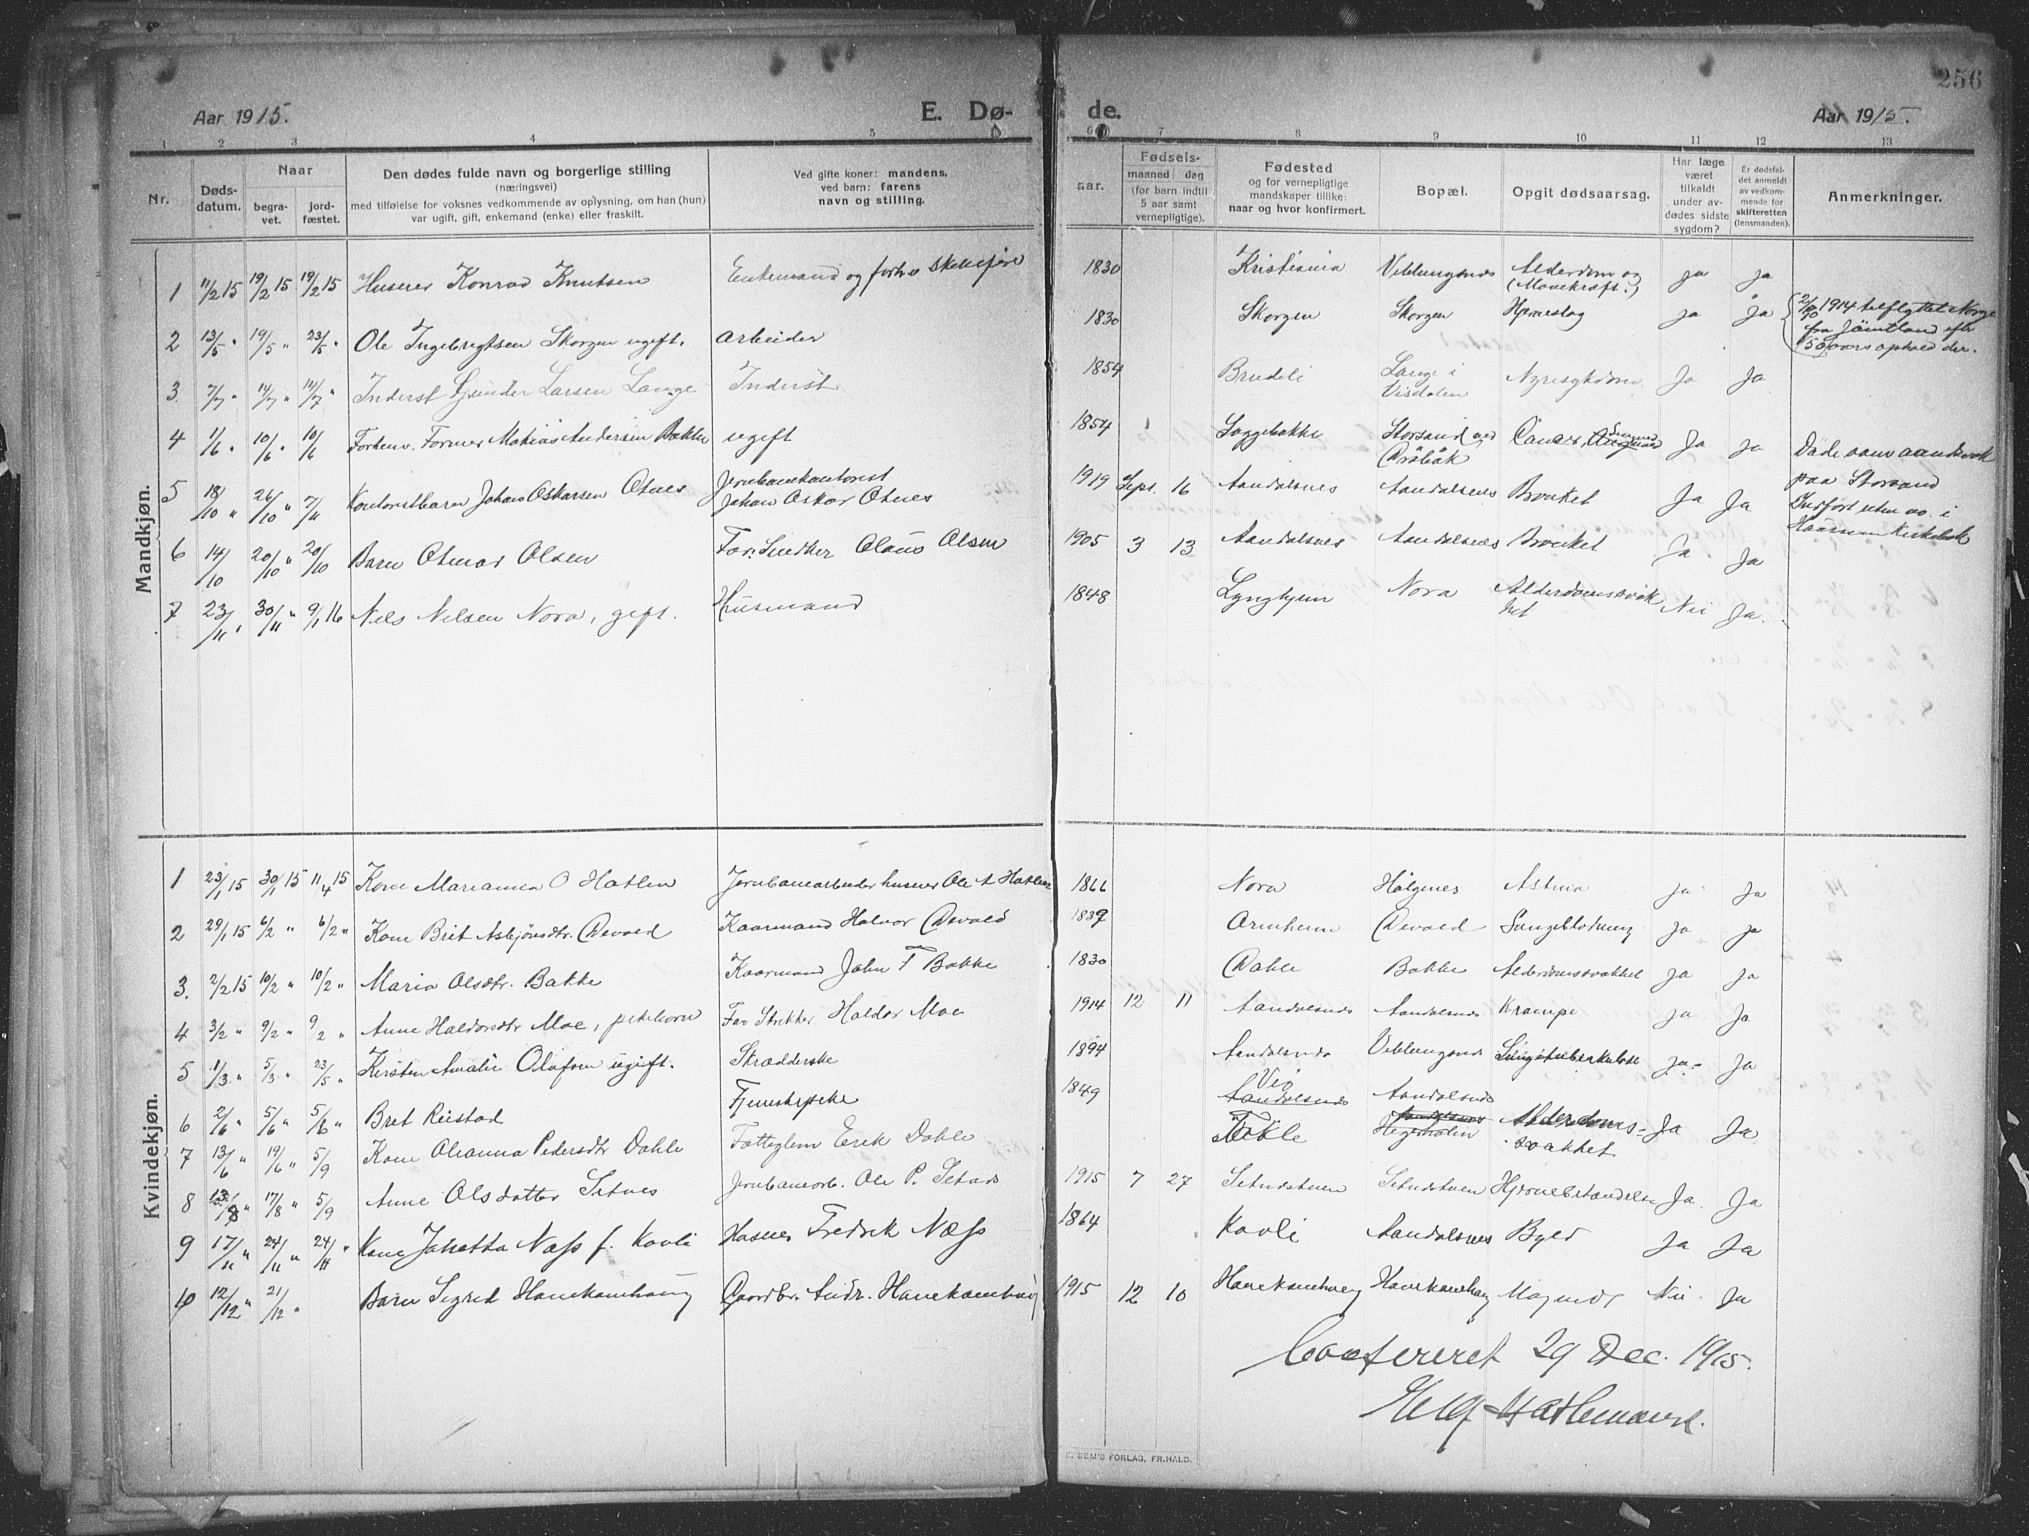 256
Aar 1915.
E. Dø-
de.
Aar 1915.
1 2 3 4 5 6 7 8 9 10 11 12 13
Nr.
Døds-
datum.
Naar
begra-
vet.
jord-
fæstet.
Den dødes fulde navn og borgerlige stilling
(næringsvei)
med tilføielse for voksnes vedkommende av oplysning, om han (hun)
var ugift, gift, enkemand (enke) eller fraskilt.
Ved gifte koner: mandens,
ved barn: farens
navn og stilling.
aar.
Fødsels-
maaned dag
(for barn indtil
5 aar samt
vernepligtige).
Fødested
og for vernepligtige
mandskaper tillike:
naar og hvor konfirmert.
Bopæl.
Opgit dødsaarsag.
Har læge
været
tilkaldt
under av-
dødes sidste
sygdom?
Er dødsfal-
det anmeldt
av vedkom-
mende for
skifteretten
(lensmanden).
Anmerkninger.
Mandkjøn.
1 11/2 15 19/2 15 19/2 15 Huseier Konrad Knutsen Enkemand og forhv 1830 Kristiania Veblungsnes Alderdom og ja ja
2 13/5 " 19/5 " 23/5 " Ole Ingebrigtsen Skorgen ugift. Arbeider 1830 Skorgen Skorgen Hjerneslag ja ja 1914 tilflyttet Norge
fra Jämtland efter
50 aars ophold der.
3. 7/7 " 14/7 " 14/7 " Inderst Larsen Lange Inderst 1854 Brudeli Lange i
Visdalen Nyresykdom Ja Ja
4 1/6 " 10/6 " 10/6 Forhenv. Former Matias Andersen Bakke ugift 1854 Soggebakke Storsand ved
Drøbak Cancer Ja ja Døde som aandssvak
paa Storsand
Indført uten no. i
5 18/10 " 26/10 " 7/11 Kontoristbarn Johan Oskarsen Otnes Jernbanekontorist
Johan Oskar Otnes 1919 Sept. 16 Aandalsnes Aandalsnes Bronkit Ja Ja
6 14/10 20/10 " 20/10 Barn Otmar Olsen Far: Snedker Olaus Olsen 1905 3 13 Aandalsnes Aandalsnes Bronkit Ja Ja
7 23/11 " 30/11 " 9/1 16 Nils Nilsen Nora, gift. Husmand 1848 Lyngheim Nora Alderdomssvak
het Nei Ja.
Kvindekjøn.
1 23/1 15 30/1 15 11/4 15 Kone Marianna O Hatlen Jernbanearbeider huseier Ole A Hatlen 1866 Nora Halgenes Astma ja ja
2 29/1 15 6/2 " 6/2 " Kone Brit Asbjørnsdtr. Devold Kaarmand Halvor Devold 1839 Ormheim Devold Lungeblødning ja ja
3. 2/2 15 10/2 " 10/2 " Maria Olsdtr. Bakke Kaarmand John T Bakke 1830 Dahle Bakke Alderdomssvakhet ja ja
4 3/2 " 9/2 " 9/2 " Anne Haldorsdtr Moe, pikebarn Far Snekker Haldor Moe 1914 12 11 Aandalsnes Aandalsnes Krampe ja Ja
5 1/3 " 5/3 " 23/5 " Kirsten Amalie Olafsen ugift. Skrædderske 1894 Aandalsnes Veblungsnes Lungetuberkulose ja Ja
6 2/6 " 5/6 " 5/6 " Bret Reistad 1849 Aandalsnes Aandalsnes Alderdoms-
svakhet Ja Ja
7 13/6 19/6 " 5/9 Kone Olianna Pedersdtr Dahle Fattiglem Erik Dahle Dahle
8 13/8 " 17/8 " 5/9 Anne Olsdatter Setnes Jernbanearb. Ole P. Setnes 1915 7 27 Setnesstuen Setnesstuen Hjernebetændelse Ja Ja
9 17/11 " 24/11 " 24/11 " Kone Johatta Næss f. Kavli Huseier Fredrik Næss 1864 Kavli Aandalsnes Byld Ja Ja
10 12/12 " 21/12 " Barn Sigrid Hanekamhaug Gaardbr. Andr. Hanekamhaug 1915 12 10 Hanekamhaug Hanekamhaug Nei Ja
Confereret 29 Dec. 1915.
E. SEM'S FORLAG, FR.HALD.